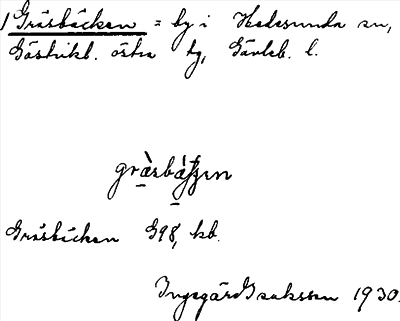 1 Gräsbäcken = by i Hedesunda sn,
Gästrikl. östra tg, Gävleb. l.
gräsbäʃʃen
Gräsbäcken G98, kb.
Ingegärd Isaksson 1930.